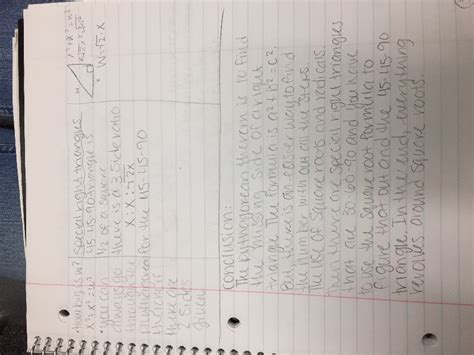 • How big is w?
x²+x²=w²
• you can
always go
through the
pythagorean
theorem if
there are
2 sides
given
Special right triangles
45-45-90 triangle is
1/2 of a square
there is a 3 side ratio
x : x : √2x
for the 45-45-90
x²+x²=w²
W=√2·x
Conclusion:
The pythagorean therem is to find
the missing side of a right
triangle. The formula is a²+b²=c²,
But there is an easier way to find
the number with out all the steps.
The use of square roots and radicals.
Then there are special right triangles
that are 30-60-90 and you have
to use the square root formula to
figure that out and the 45-45-90
triangle. In the end, everything
revolves around square roots.